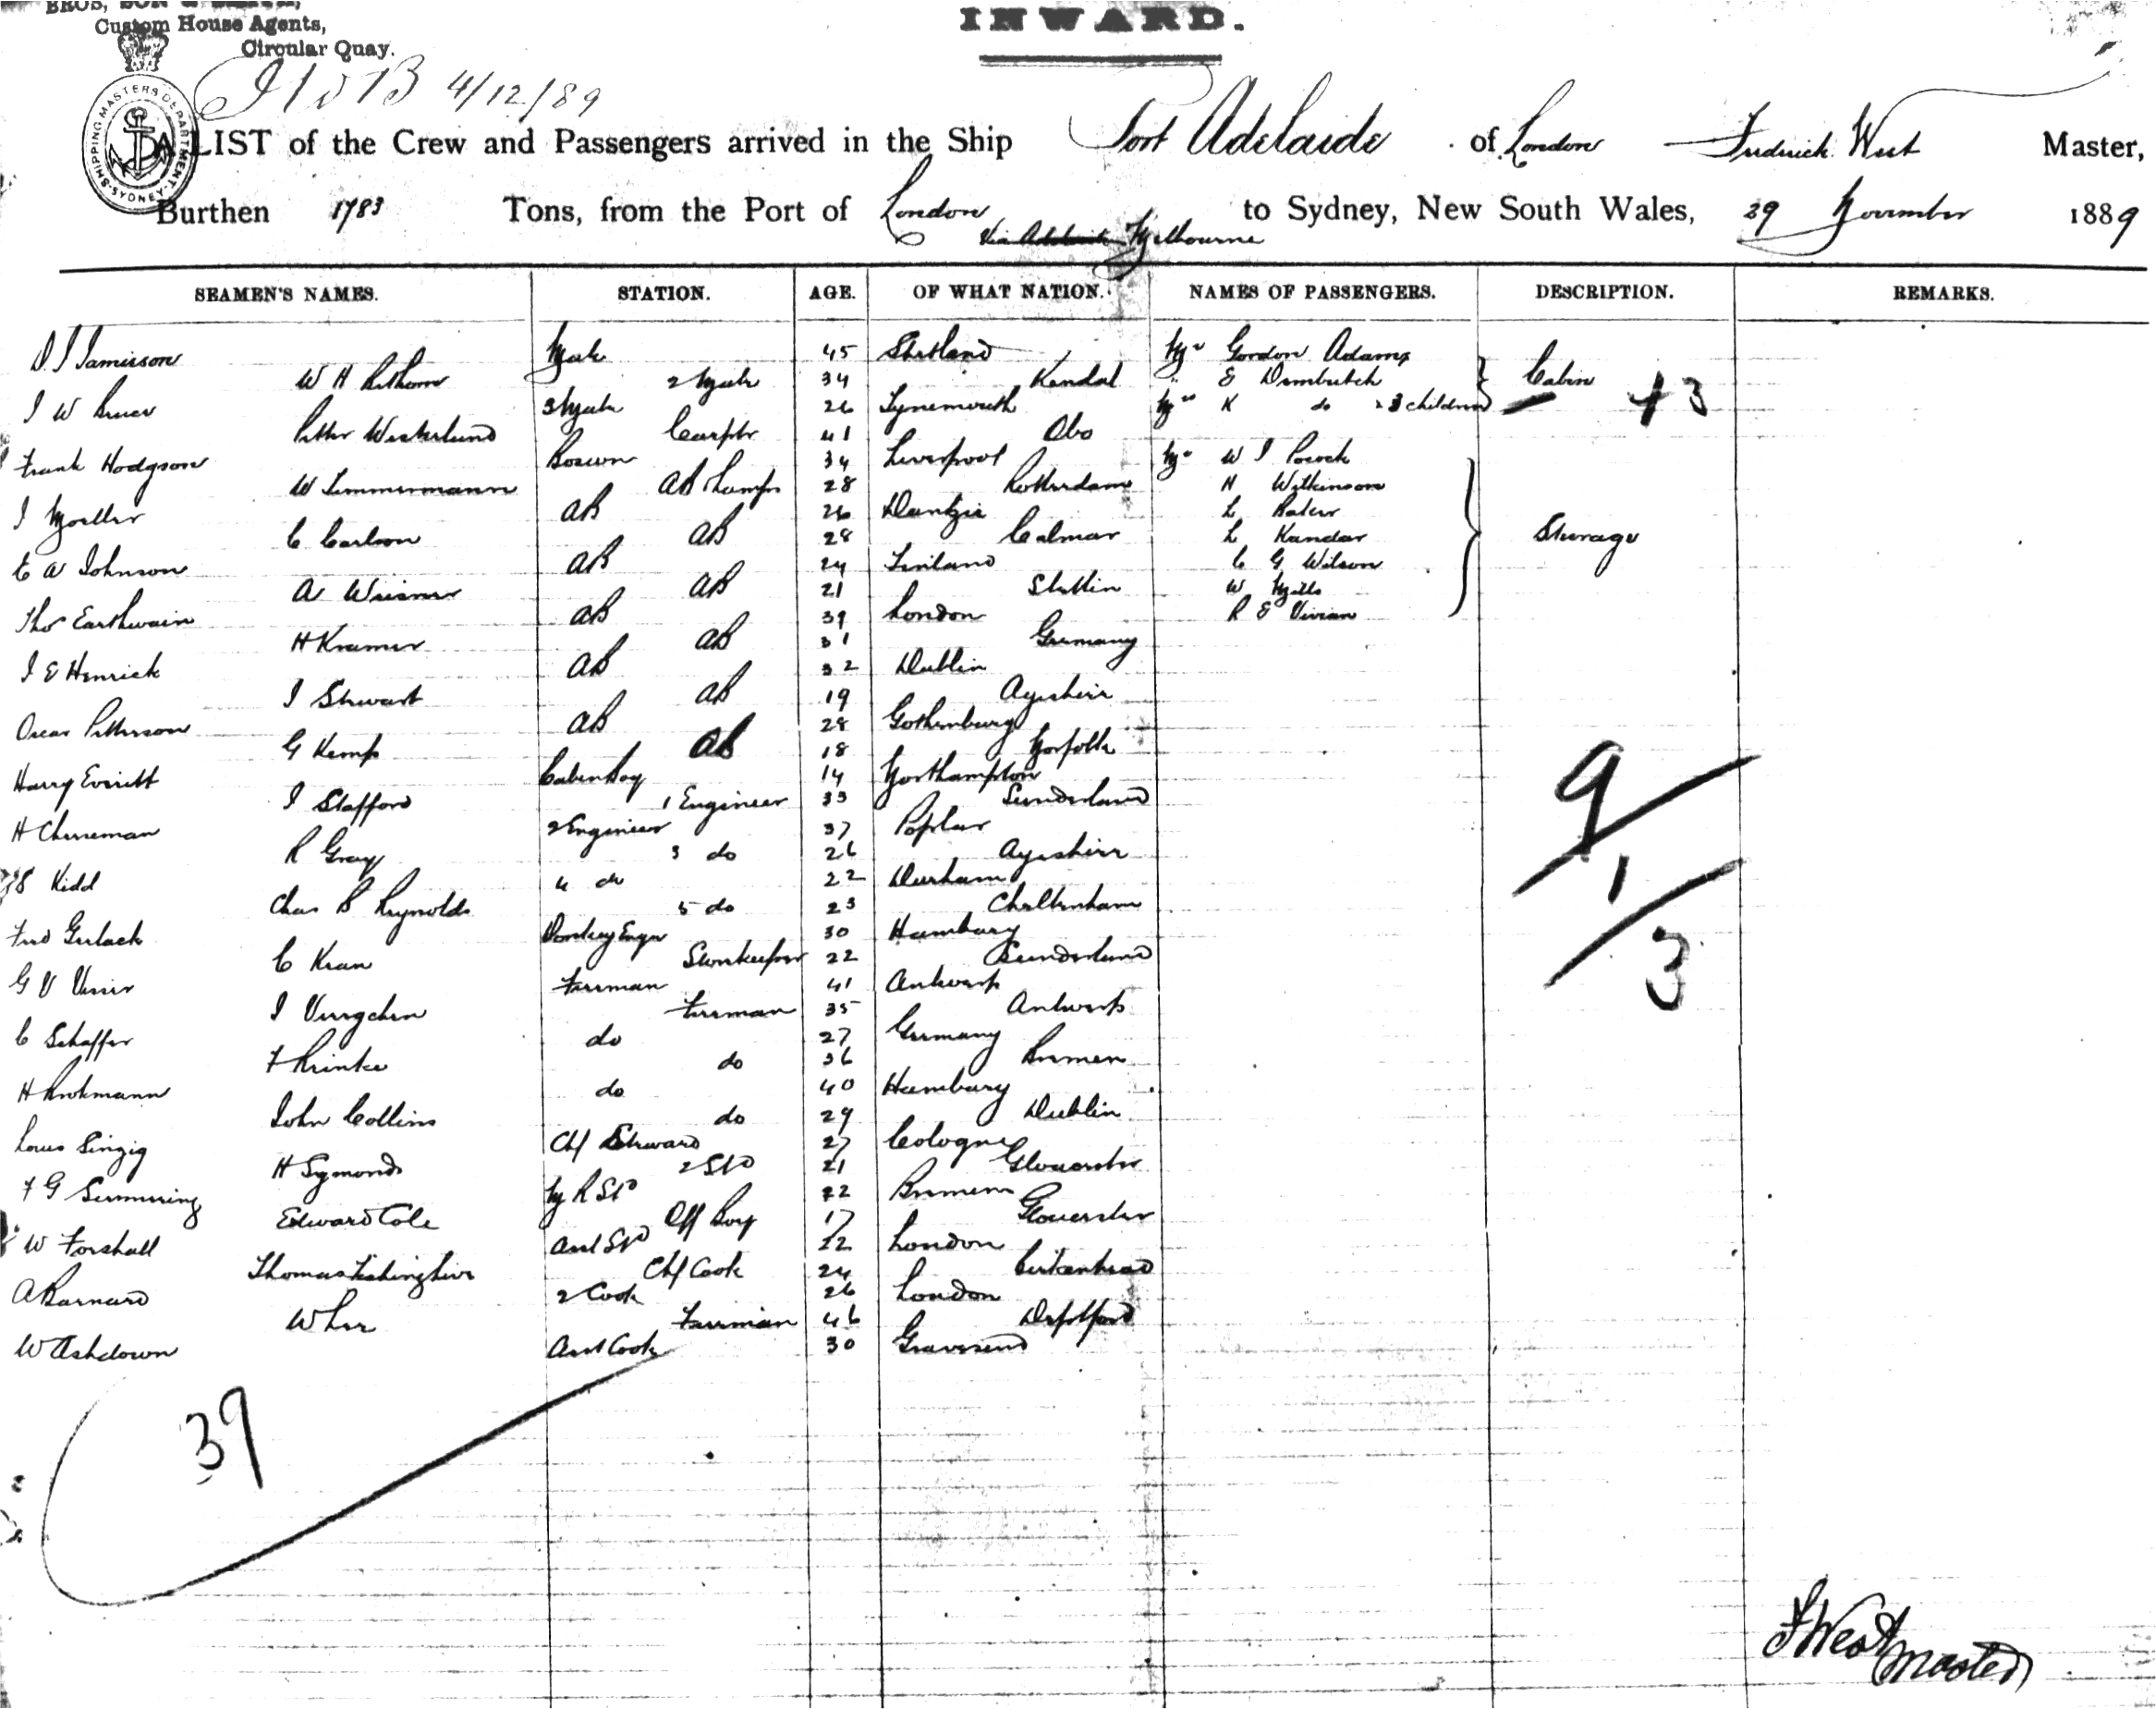 BROS, SON &
Custom House Agents,
Circular Quay.
INWARD.
4/12/89
SHIPPING MASTERS DEPARTMENT SYDNEY
A LIST of the Crew and Passengers arrived in the Ship Port Adelaide of London Fredrick West Master,
Burthen 1783 Tons, from the Port of London to Sydney, New South Wales, 29 November 1889
Via Adelaide Melbourne
SEAMEN'S NAMES. STATION. AGE. OF WHAT NATION. NAMES OF PASSENGERS. DESCRIPTION. REMARKS.
D. J Jamieson Mate 45 Shetland Mr Gordon Adams
W H 2 Mate 34 Kendal " E Cabin
J W Bruce 3 Mate 26 Tynemouth K do & 3 children + 3
Petter Westerlund Carptr 41 Abo
Frank Hodgson Bosun 34 Liverpool Mr W J Pocock
W Timmermann AB Lamps 28 Rotterdam H Wilkinson
J Moeller AB 26 Dantzic L
C Carlson AB 28 Calmar L Kandar Steerage
E A Johnson AB 24 Finland C G Wilson
A Weisner AB 21 Stettin W Mills
Thos Earthwain AB 39 London R E Vivian
H Kramer AB 31 Germany
J E Henrick AB 32 Dublin
J Stewart AB 19 Ayrshire
Oscar Petterson AB 28 Gothenburg
G Kemp AB 18 Norfolk
Harry Everitt Cabin Boy 14 Northampton
J Stafford 1 Engineer 33 Sunderland
H Cheeseman 2 Engineer 37 Poplar
R Gray 3 do 26 Ayrshire
Kidd 4 do 22 Durham
Chas B Reynolds 5 do 23 Cheltenham
Fred Gerlach Donkey Engr 30 Hamburg
C Kran Storekeeper 22 Sunderland
G V Visser Fireman 41 Antwerp
J Fireman 35 Antwerp
C Schaffer do 27 Germany
F Reinke do 36 Bremen
H Brokmann do 40 Hamburg
John Collins do 29 Dublin
Louis Sinzig Chf Steward 27 Cologne
H Symonds 2 Std 21 Gloucester
F G M R Std 22 Bremen
Edward Cole Off Boy 17 Gloucester
W Forshall Asst Std 22 London
Thomas Chf Cook 24 Birkenhead
A Barnard 2 Cook 26 London
W Lee Fireman 46 Deptford
W Ashdown Asst Cook 30 Gravesend
9/1/3
39
F West
Master